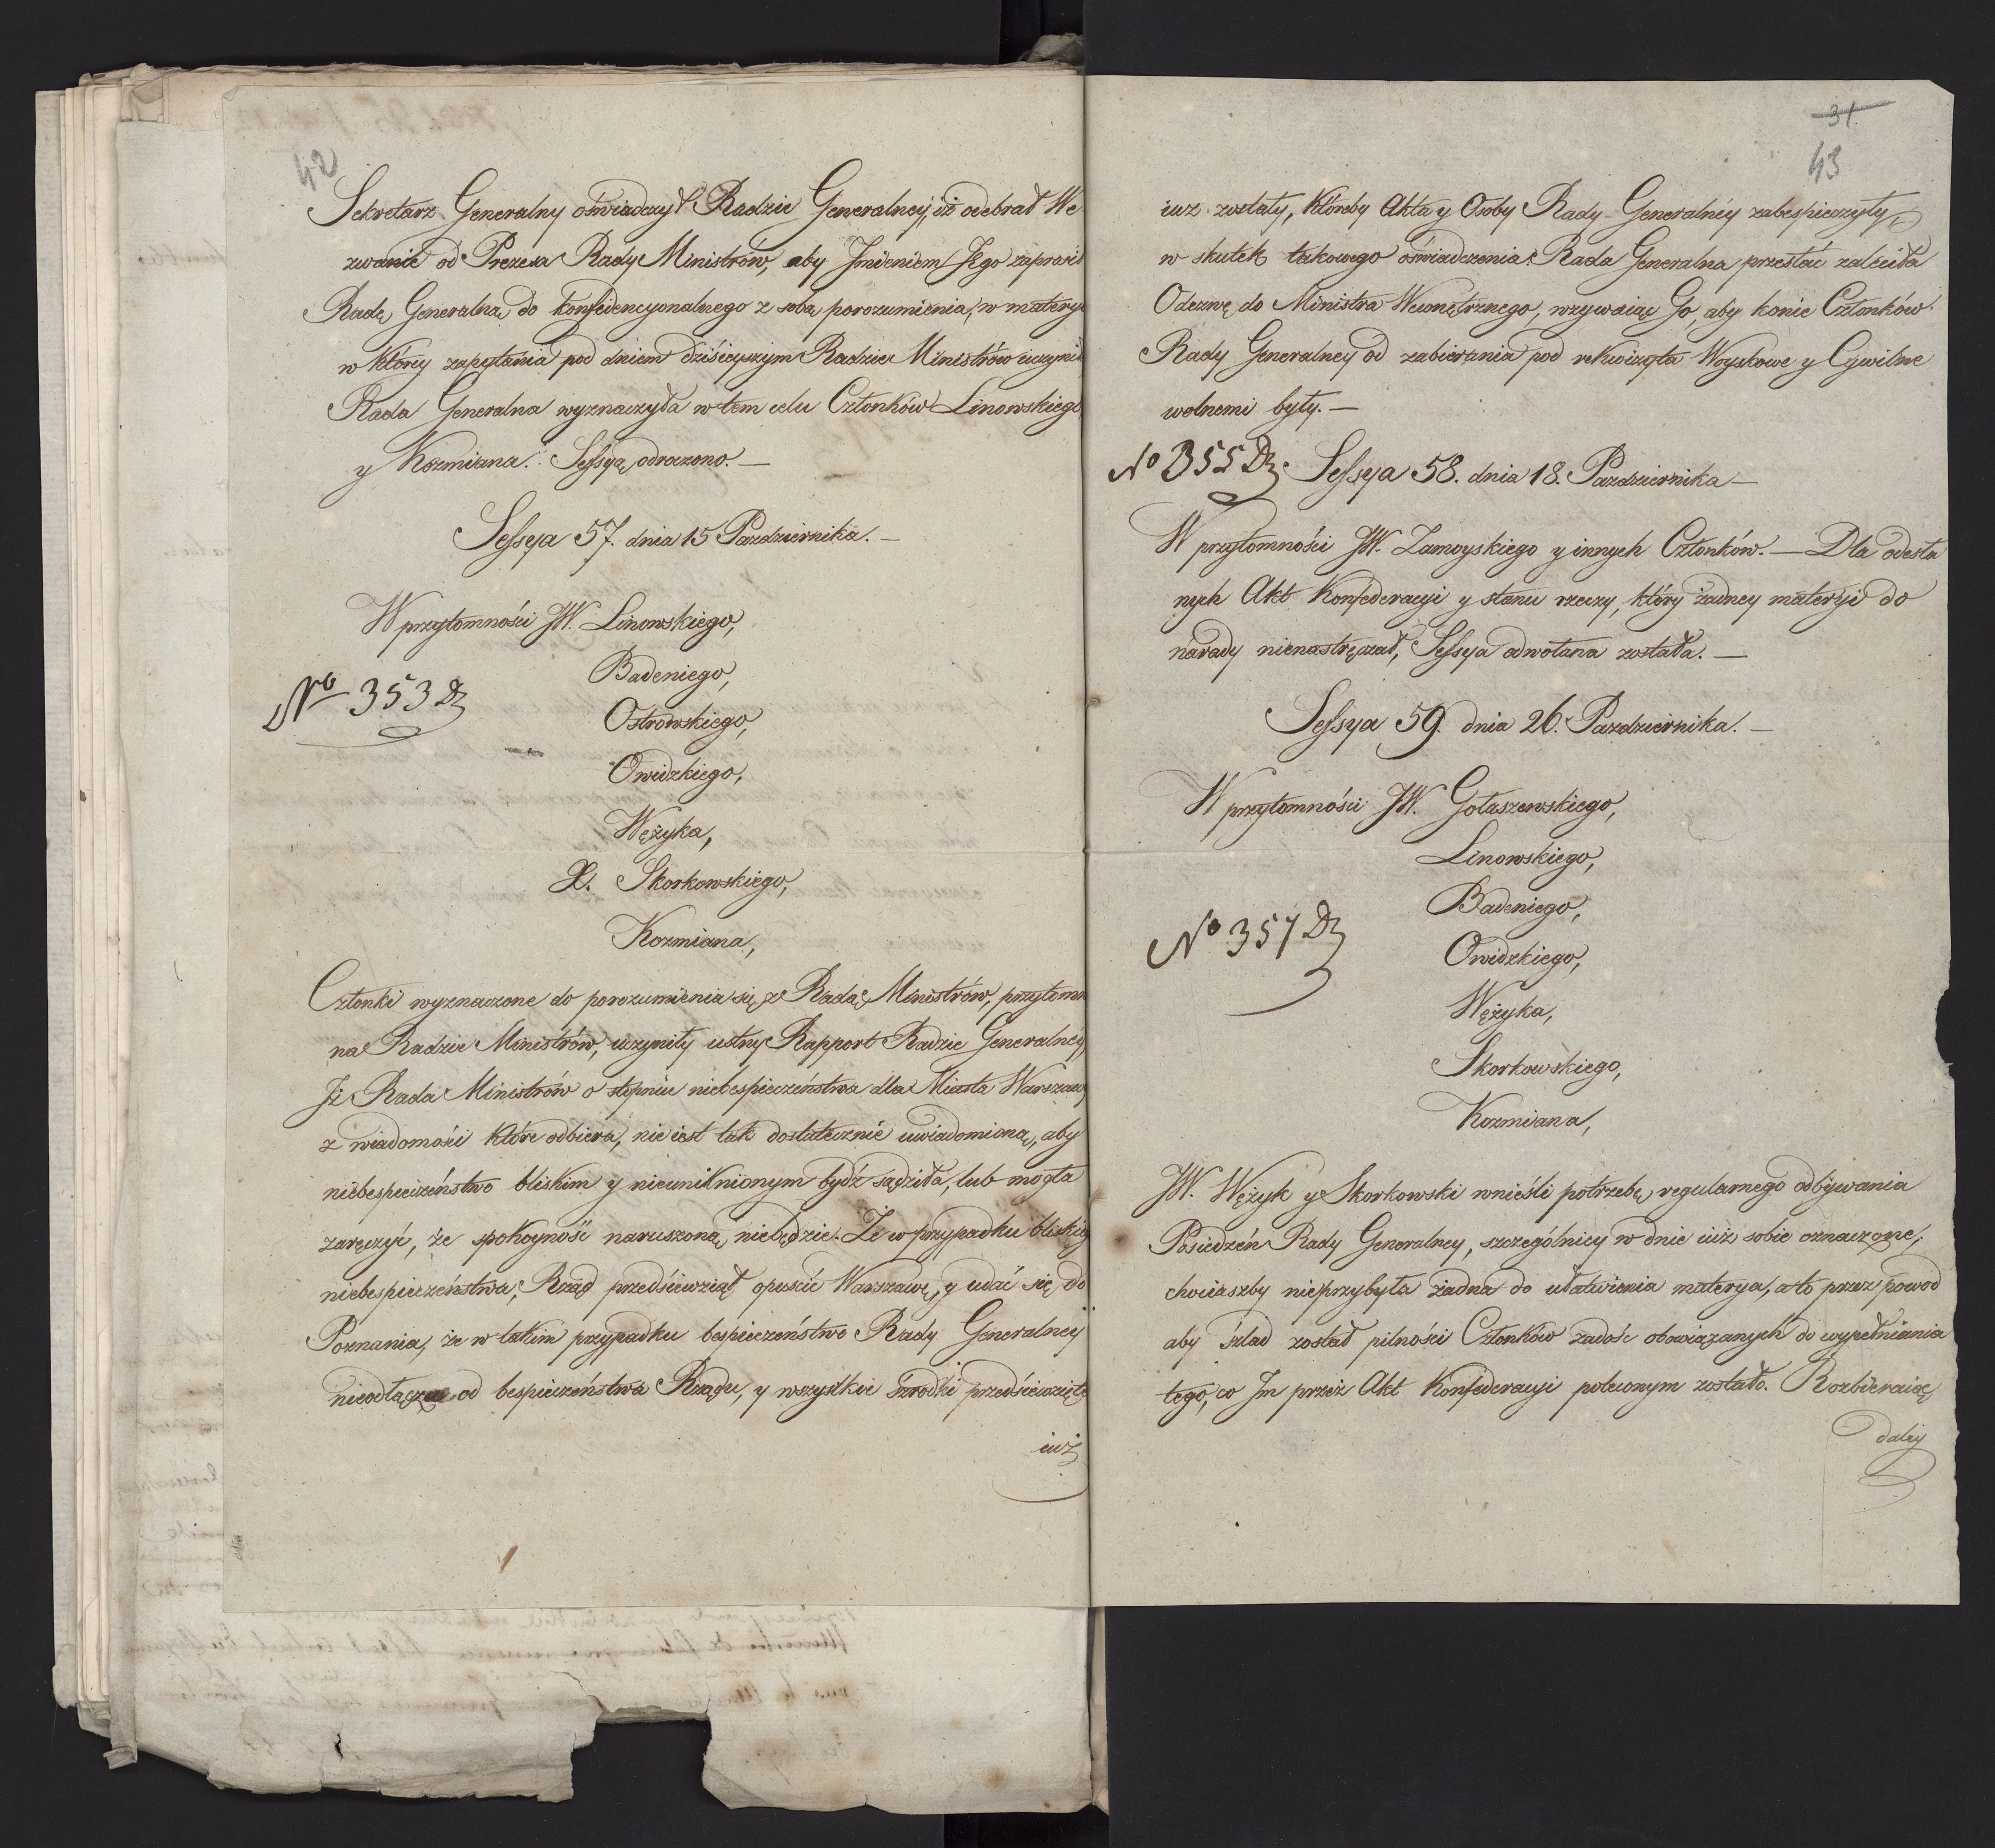 42
Sekretarz Generalny oświadczył Radzie Generalney, iż odebrał We
zwanie od Prezesa Rady Ministrów, aby Jmieniem Jego zaprosił
Radę Generalną do konfidencyonalnego z sobą porozumienia, w materyi
w którey zapytania pod dniem dzisieyszym Radzie Ministrów uczynił
Rada Generalna wyznaczyła w tem celu Członków Linowskiego
y Kozmiana. Sessyą odroczono. —
Sessya 57. dnia 15 Pazdziernika. —
W przytomności JW. Linowskiego,
Badeniego,
No 353 Dz
Ostrowskiego,
Owidzkiego,
Wężyka,
X. Skorkowskiego,
Kozmiana,
Członki wyznaczone do porozumienia się z Radą Ministrów, przytomn
na Radzie Ministrów, uczyniły ustny Rapport Radzie Generalney
Jż Rada Ministrów o stopniu niebespieczeństwa dla Miasta Warszawy
z wiadomości które odbiera, nie iest tak dostatecznie uwiadomioną, aby
niebespieczeństwo bliskim y nieuniknionym bydź sądziła, lub mogła
zaręczyć, że spokoyność naruszoną niebędzie. Że w przypadku bliskieg
niebespieczeństwa, Rząd przedsiewziął opuścić Warszawę, y udać się do
Poznania, że w takim przypadku bespieczeństwo Rady Generalney
nieodłączne od bespieczeństwa Rządu, y wszystkie srodki przedsiewzięte
iuż
31.
43
iuz zostały, któreby Akta y Osoby Rady Generalney zabespieczyły,
w skutek takowego oświadczenia Rada Generalna przesłać zaleciła
Odezwę do Ministra Wewnętrznego, wzywaiąc Go, aby konie Członków
Rady Generalney od zabierania pod rekwizyta Woyskowe y Cywilne
wolnemi były. —
No 355 Dz. Sessya 58. dnia 18. Pazdziernika —
W przytomności JW. Zamoyskiego y innych Członków. — Dla odesła
nych Akt Konfederacyi y stanu rzeczy, który żadney materyi do
narady nienastręczał, Sessya odwołana została. —
Sessya 59. dnia 26. Pazdziernika. —
W przytomności JW. Gołaszewskiego,
Linowskiego,
Badeniego,
No 357 Dz
Owidzkiego,
Wężyka,
Skorkowskiego,
Kozmiana,
JW. Wężyk y Skorkowski wnieśli potrzebę regularnego odbywania
Posiedzeń Rady Generalney, szczególniey w dnie iuż sobie oznaczone,
chociaszby nieprzybyła żadna do ułatwienia materya, a to przez powod
aby szlad został pilności Członków zadość obowiązanych do wypełniania
tego, co Jm przez Akt Konfederacyi poleconym zostało. Rozbieraiąc
daley